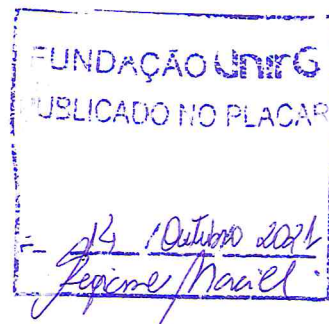 FUNDAÇÃO UnirG
PUBLICADO NO PLACAR
14 / Outubro 2021
Maciel